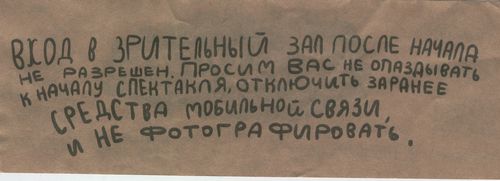 ВХОД В ЗРИТЕЛЬНЫЙ ЗАЛ ПОСЛЕ НАЧАЛА
НЕ РАЗРЕШЕН. ПРОСИМ ВАС НЕ ОПАЗДЫВАТЬ
К НАЧАЛУ СПЕКТАКЛЯ, ОТКЛЮЧИТЬ ЗАРАНЕЕ
СРЕДСТВА МОБИЛЬНОЙ СВЯЗИ,
И НЕ ФОТОГРАФИРОВАТЬ.